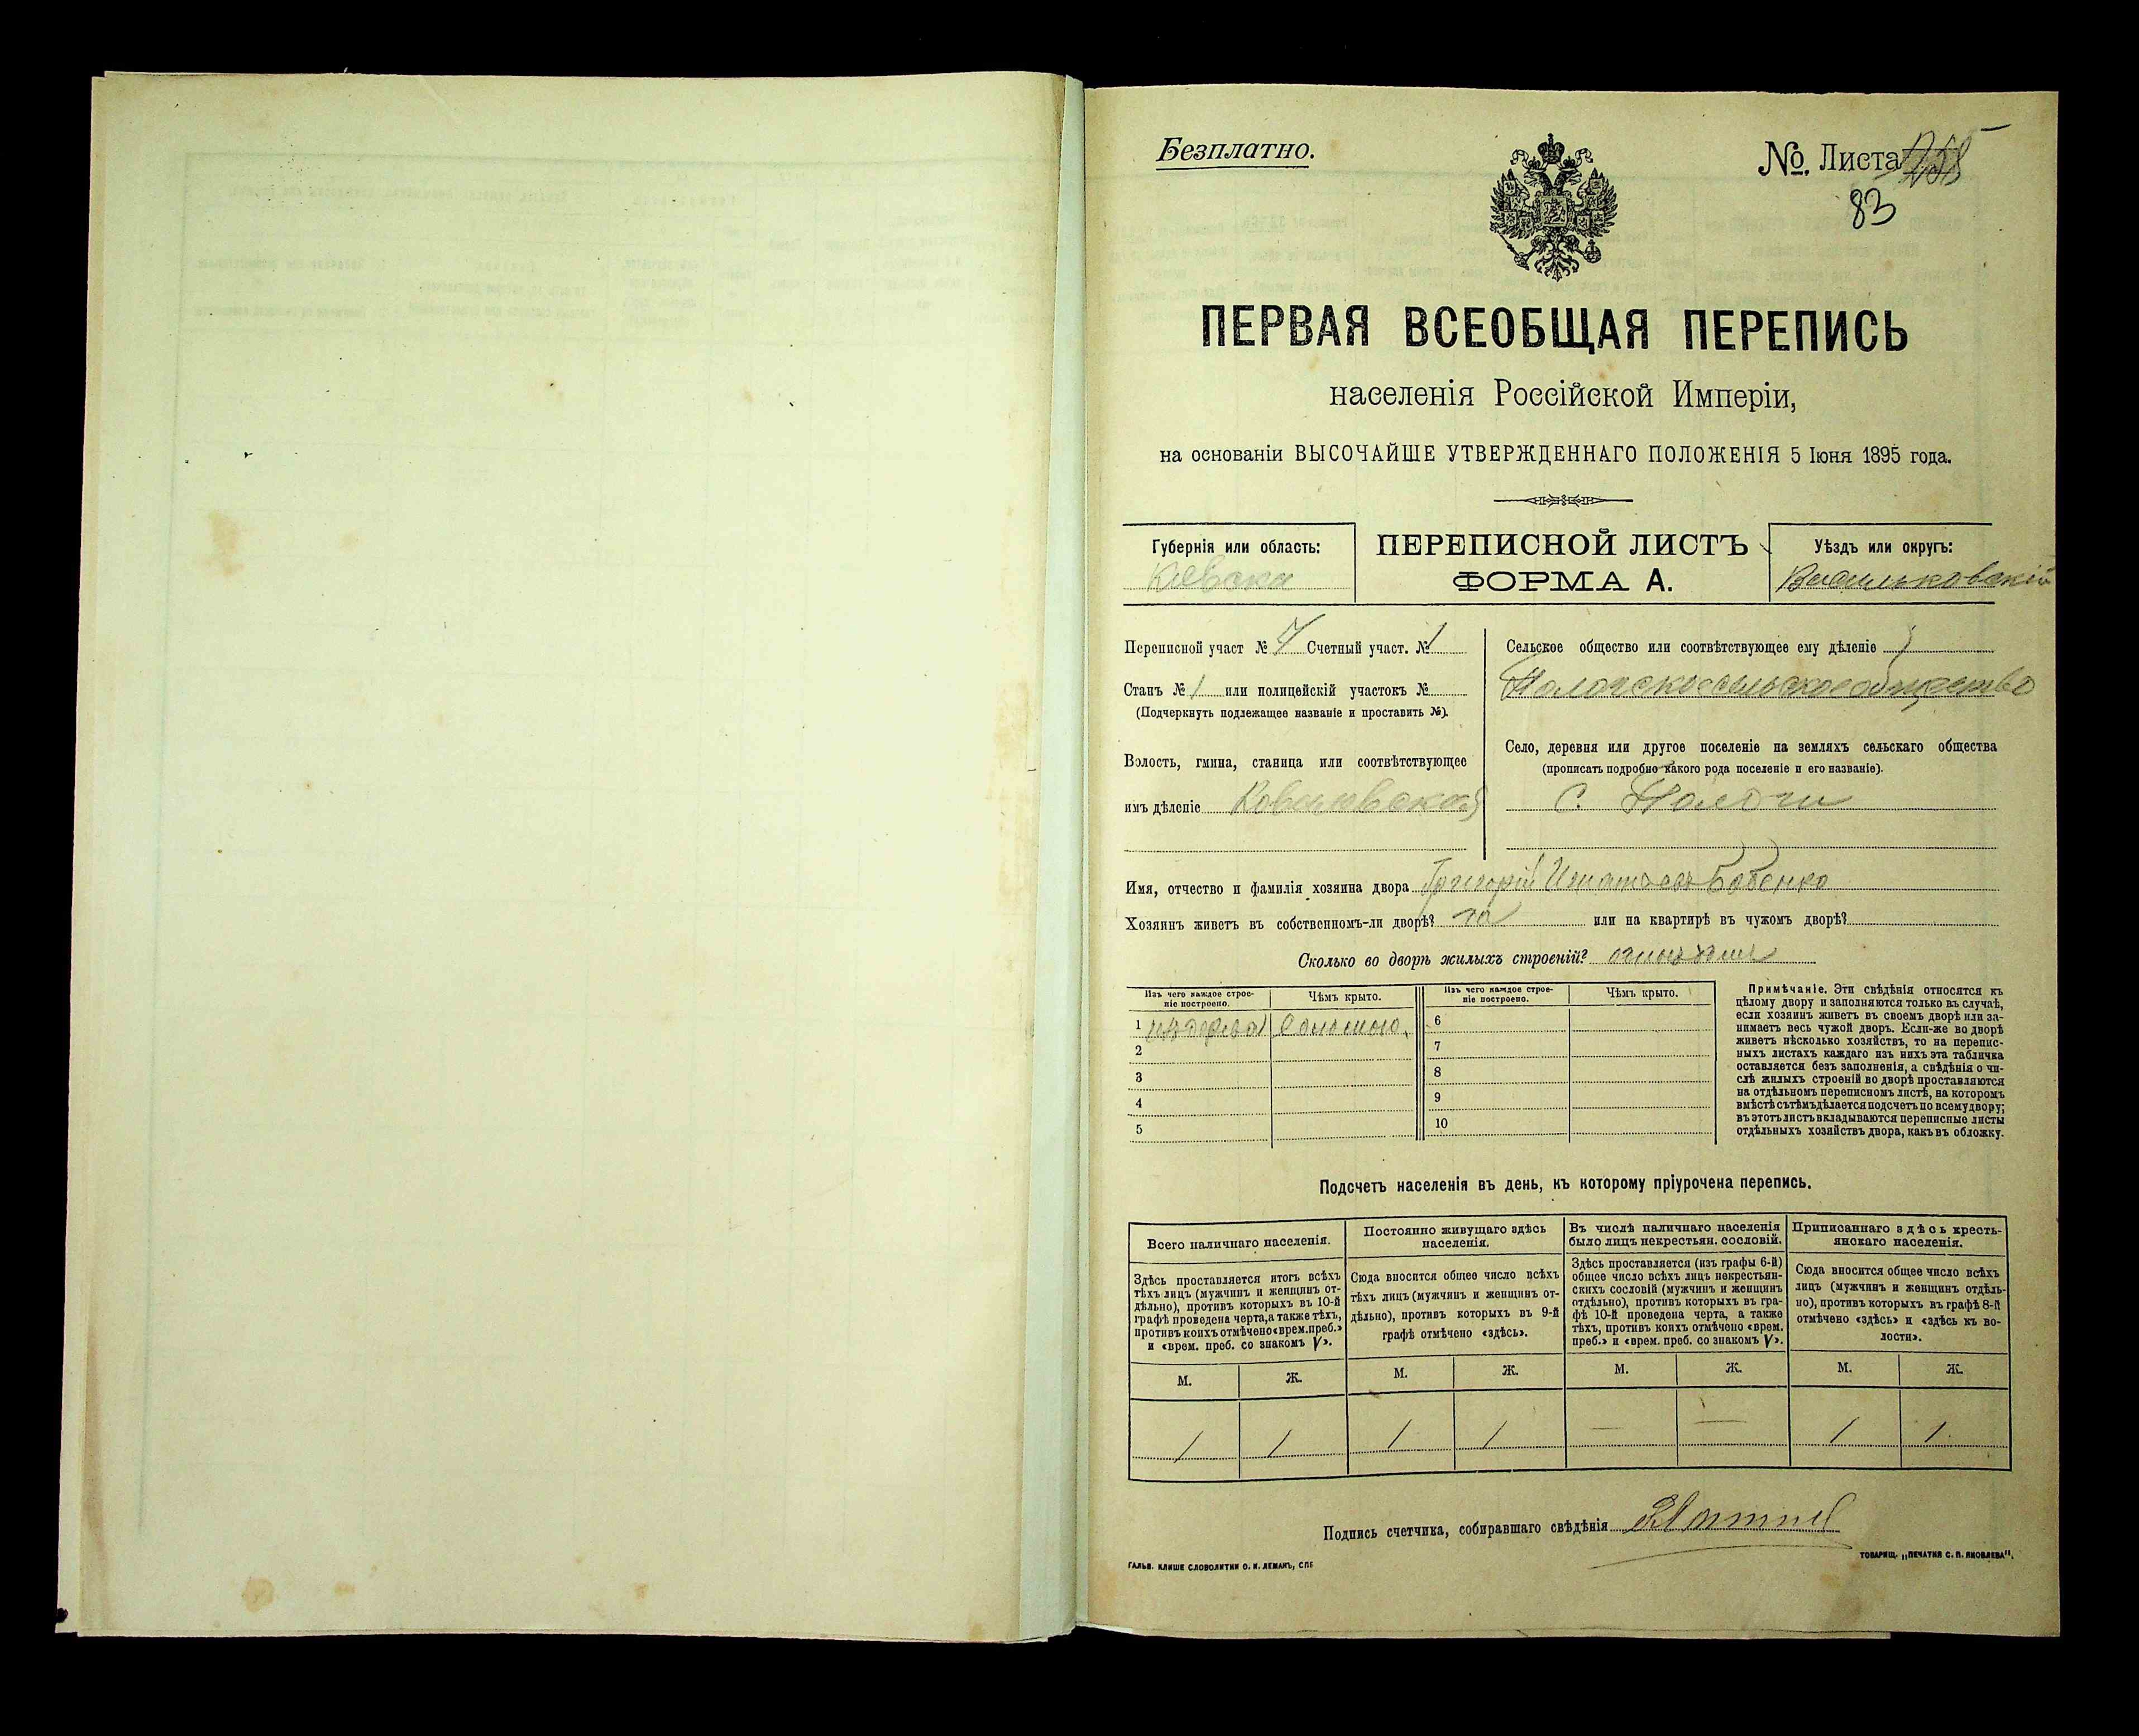 Безплатно.
№. Листа
83
ПЕРВАЯ ВСЕОБЩАЯ ПЕРЕПИСЬ
населенія Россійской Имперіи,
на основаніи ВЫСОЧАЙШЕ УТВЕРЖДЕННАГО ПОЛОЖЕНІЯ 5 Іюня 1895 года.
Губернія или область:
Кіевская
ПЕРЕПИСНОЙ ЛИСТЪ
ФОРМА А.
Уѣздъ или округъ:
Васильковскій
Переписной участ № 4 Счетный участ. № 1
Станъ № 1 или полицейскій участокъ №
(Подчеркнуть подлежащее названіе и проставить №).
Волость, гмина, станица или соотвѣтствующее
имъ дѣленіе
Сельское общество или соотвѣтствующее ему дѣленіе
сельское общество
Село, деревня или другое поселеніе на земляхъ сельскаго общества
(прописать подробно какого рода поселеніе и его названіе).
с. Пологи
Имя, отчество и фамилія хозяина двора Григорій Игнатьевъ Бабенко
Хозяинъ живетъ въ собственномъ-ли дворѣ? да или на квартирѣ въ чужомъ дворѣ?
Сколько во дворѣ жилыхъ строеній?
Изъ чего каждое строе-
ніе построено.
Чѣмъ крыто.
Изъ чего каждое строе-
ніе построено.
Чѣмъ крыто.
1 изъ дерева Соломою
2
3
4
5
6
7
8
9
10
Примѣчаніе. Эти свѣдѣнія относятся къ
цѣлому двору и заполняются только въ случаѣ,
если хозяинъ живетъ въ своемъ дворѣ или за-
нимаетъ весь чужой дворъ. Если-же во дворѣ
живетъ нѣсколько хозяйствъ, то на перепис-
ныхъ листахъ каждаго изъ нихъ эта табличка
оставляется безъ заполненія, а свѣдѣнія о чи-
слѣ жилыхъ строеній во дворѣ проставляются
на отдѣльномъ переписномъ листѣ, на которомъ
вмѣстѣ съ тѣмъ дѣлается подсчетъ по всему двору;
въ этотъ листъ вкладываются переписные листы
отдѣльныхъ хозяйствъ двора, какъ въ обложку.
Подсчетъ населенія въ день, къ которому пріурочена перепись.
Всего наличнаго населенія.
Здѣсь проставляется итогъ всѣхъ
тѣхъ лицъ (мужчинъ и женщинъ от-
дѣльно), противъ которыхъ въ 10-й
графѣ проведена черта, а также тѣхъ,
противъ коихъ отмѣчено «врем. преб.»
и «врем. преб. со знакомъ V».
Постоянно живущаго здѣсь
населенія.
Сюда вносится общее число всѣхъ
тѣхъ лицъ (мужчинъ и женщинъ от-
дѣльно), противъ которыхъ въ 9-й
графѣ отмѣчено «здѣсь».
Въ числѣ наличнаго населенія
было лицъ некрестьян. сословій.
Здѣсь проставляется (изъ графы 6-й)
общее число всѣхъ лицъ некрестьян-
скихъ сословій (мужчинъ и женщинъ
отдѣльно), противъ которыхъ въ гра-
фѣ 10-й проведена черта, а также
тѣхъ, противъ коихъ отмѣчено «врем.
преб.» и «врем. преб. со знакомъ V».
Приписаннаго здѣсь кресть-
янскаго населенія.
Сюда вносится общее число всѣхъ
лицъ (мужчинъ и женщинъ отдѣль-
но), противъ которыхъ въ графѣ 8-й
отмѣчено «здѣсь» и «здѣсь къ во-
лости».
М. Ж. М. Ж. М. Ж. М. Ж.
1 1 1 1 — — 1 1
Подпись счетчика, собиравшаго свѣдѣнія
ГАЛЬВ. КЛИШЕ СЛОВОЛИТНИ О. И. ЛЕМАНЪ, СПБ
ТОВАРИЩ. „ПЕЧАТНЯ С. П. ЯКОВЛЕВА“.